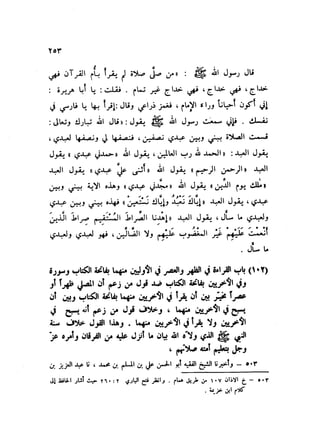 ٢٥٣
قال رسول الله ﷺ : «من صلى صلاة لم يقرأ بأم القرآن فهي
خداج ، فهي خداج ، فهي خداج غير تمام» . فقلت : يا أبا هريرة :
إني أكون أحيانا وراء الإمام ، فغمز ذراعي وقال: اقرأ بها يا فارسي في
نفسك . فإني سمعت رسول الله ﷺ يقول : «قال الله تبارك وتعالى:
قسمت الصلاة بيني وبين عبدي نصفين ، فنصفها لي ونصفها لعبدي ،
يقول العبد: «الحمد لله رب العالمين» ، يقول الله «حمدني عبدي» ، يقول
العبد «الرحمن الرحيم» يقول الله «أثنى علي عبدي» ، يقول العبد
«مالك يوم الدين» يقول الله «مجدني عبدي» ، وهذه الآية بيني وبين
عبدي ، يقول العبد «إياك نعبد وإياك نستعين» ، فهذه بيني وبين عبدي
ولعبدي ما سأل ، يقول العبد «اهدنا الصراط المستقيم صراط الذين
أنعمت عليهم غير المغضوب عليهم ولا الضالين» ، فهو لعبدي ولعبدي
ما سأل .
(١٠٢) باب القراءة في الظهر والعصر في الأوليين منهما بفاتحة الكتاب وسورة
وفي الأخريين بفاتحة الكتاب ضد قول من زعم أن المصلي ظهرا أو
عصرا مخير بين أن يقرأ في الأخريين منهما بفاتحة الكتاب وبين أن
يسبح في الأخريين منهما ، وخلاف قول من زعم أنه يسبح في
الأخريين ولا يقرأ في الأخريين منهما . وهذا القول خلاف سنة
النبي ﷺ الذي ولاه الله بيان ما أنزل عليه من الفرقان وأمره عز
وجل بتعليم أمته صلاتهم ،
٥٠٣ - وأخبرنا الشيخ الفقيه أبو الحسن علي بن المسلم بن محمد ، نا عبد العزيز بن
٥٠٣ - خ الأذان ١٠٧ من طريق همام . وانظر فتح الباري ٢ : ٢٦٠ حيث أشار الحافظ إلى
كلام ابن خزيمة .